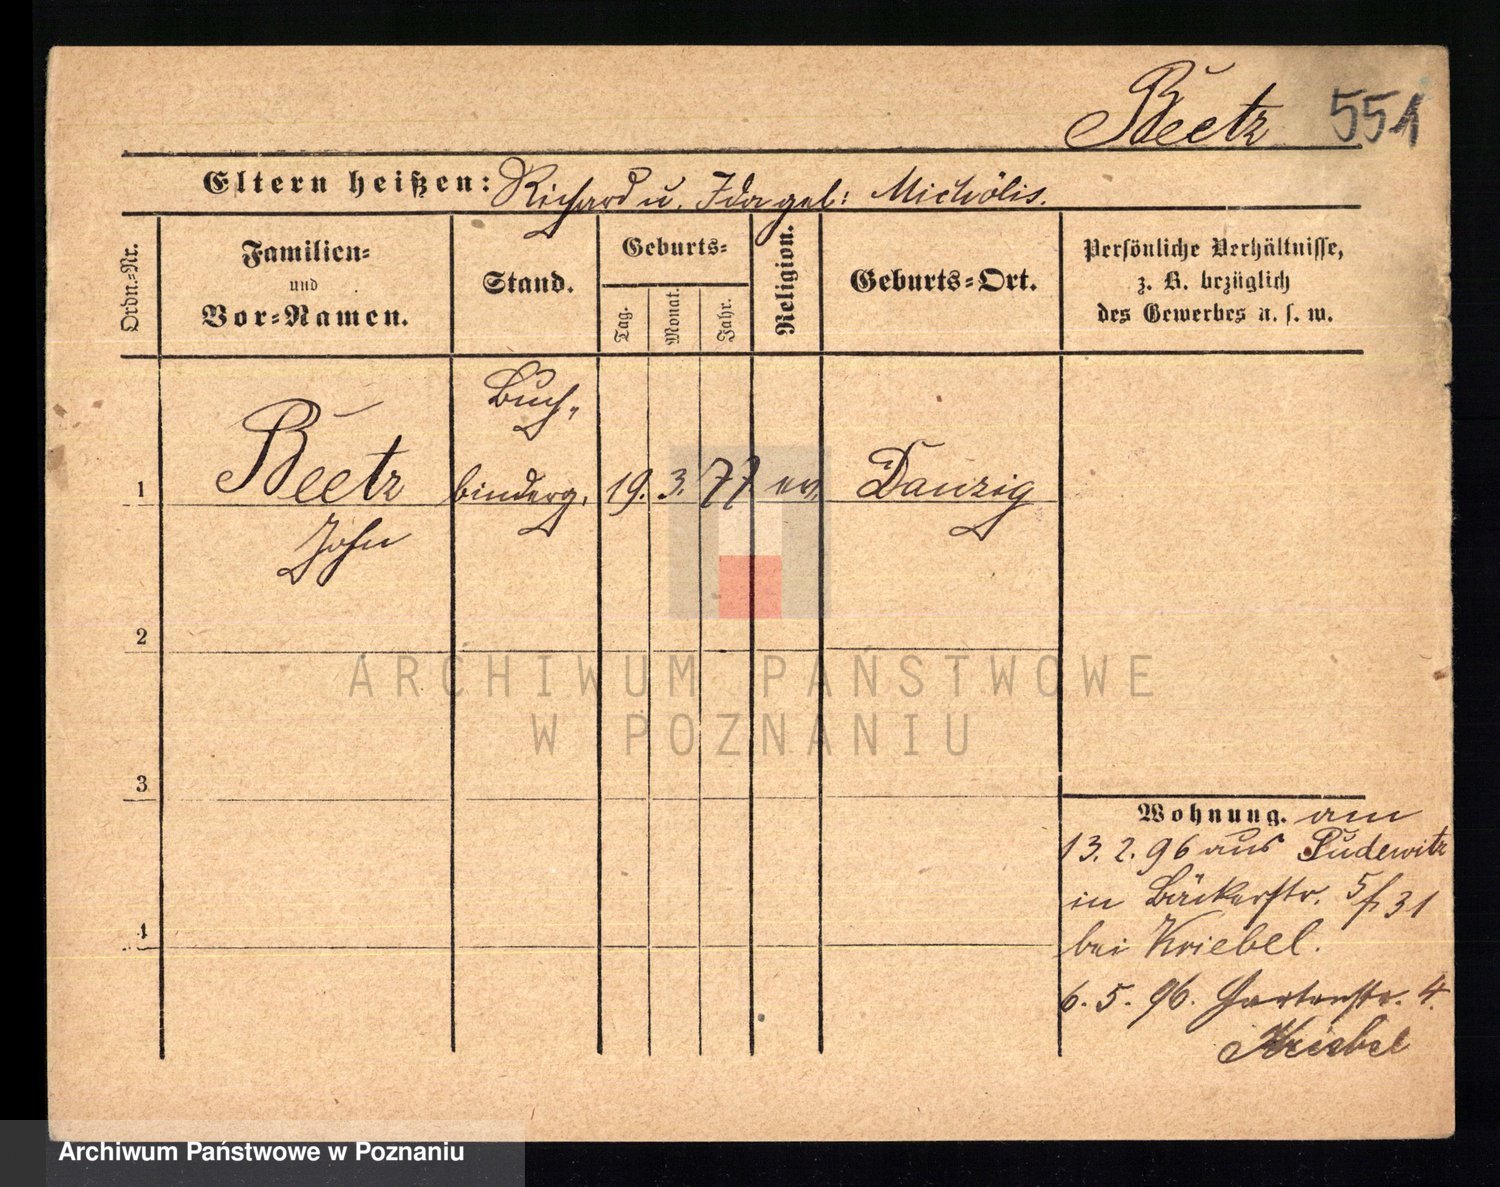 Beetz 551
Eltern heißen: Richard u. Ida geb: Michölis.
Ordn.-Nr.
Familien-
und
Vor-Namen.
Stand.
Geburts-
Tag.
Monat.
Jahr.
Religion.
Geburts-Ort.
Persönliche Verhältnisse,
z. B. bezüglich
des Gewerbes u. s. w.
Buch-
1 Beetz binderg. 19. 3. 77 ev. Danzig
John
2
ARCHIWUM PAŃSTWOWE
W POZNANIU
3
Wohnung. am
13. 2. 96 aus Pudewitz
in Bäckerstr. 5/31
bei Kriebel.
4
6. 5. 96. Gartenstr. 4.
Kriebel
Archiwum Państwowe w Poznaniu